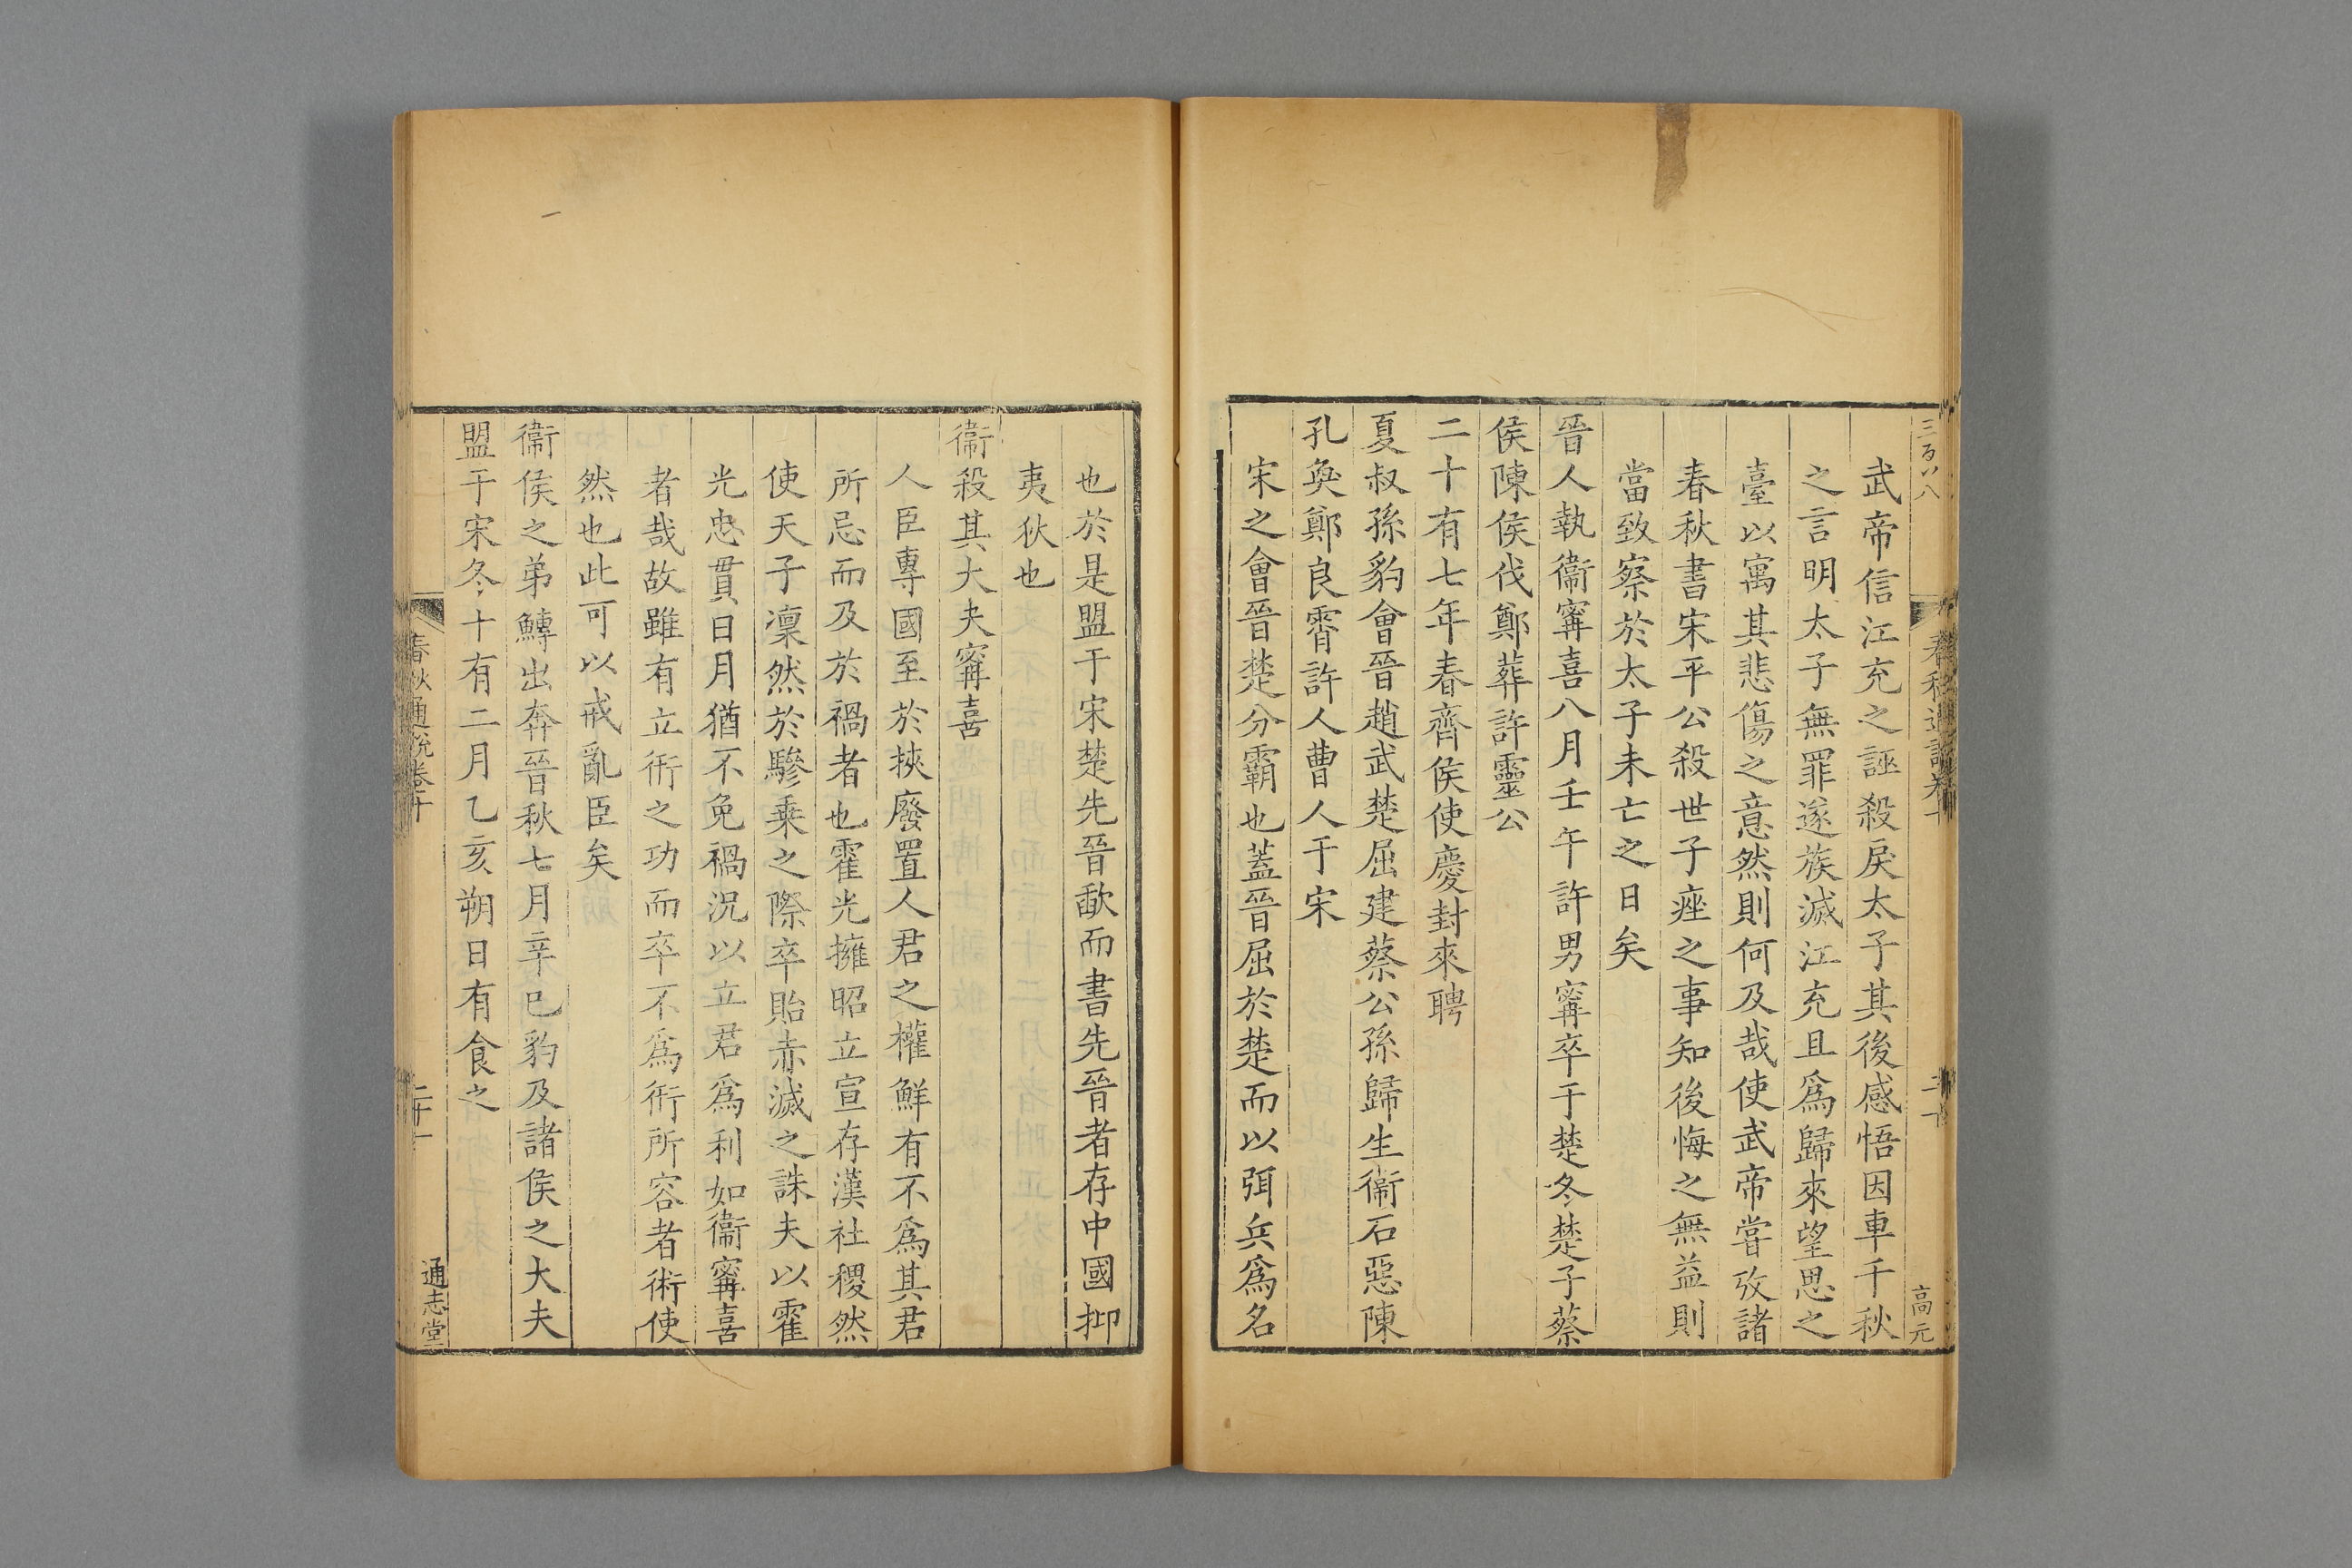 武帝信江充之誣殺戾太子其後感悟因車千秋
之言明太子無罪遂族滅江充且爲歸來望思之
臺以寓其悲傷之意然則何及哉使武帝嘗攷諸
春秋書宋平公殺世子痤之事知後悔之無益則
當致察於太子未亡之日矣
晉人執衞甯喜八月壬午許男甯卒于楚冬楚子蔡
侯陳侯伐鄭葬許靈公
二十有七年春齊侯使慶封來聘
夏叔孫豹會晉趙武楚屈建蔡公孫歸生衞石惡陳
孔奐鄭良霄許人曹人于宋
宋之會晉楚分霸也蓋晉屈於楚而以弭兵爲名
也於是盟于宋楚先晉歃而書先晉者存中國抑
夷狄也
衞殺其大夫甯喜
人臣專國至於挾廢置人君之權鮮有不爲其君
所忌而及於禍者也霍光擁昭立宣存漢社稷然
使天子凜然於驂乗之際卒貽赤滅之誅夫以霍
光忠貫日月猶不免禍況以立君爲利如衞甯喜
者哉故雖有立衎之功而卒不爲衎所容者術使
然也此可以戒亂臣矣
衞侯之弟鱄出奔晉秋七月辛巳豹及諸侯之大夫
盟于宋冬十有二月乙亥朔日有食之
春秋通說卷十
二十一
通志堂
高元